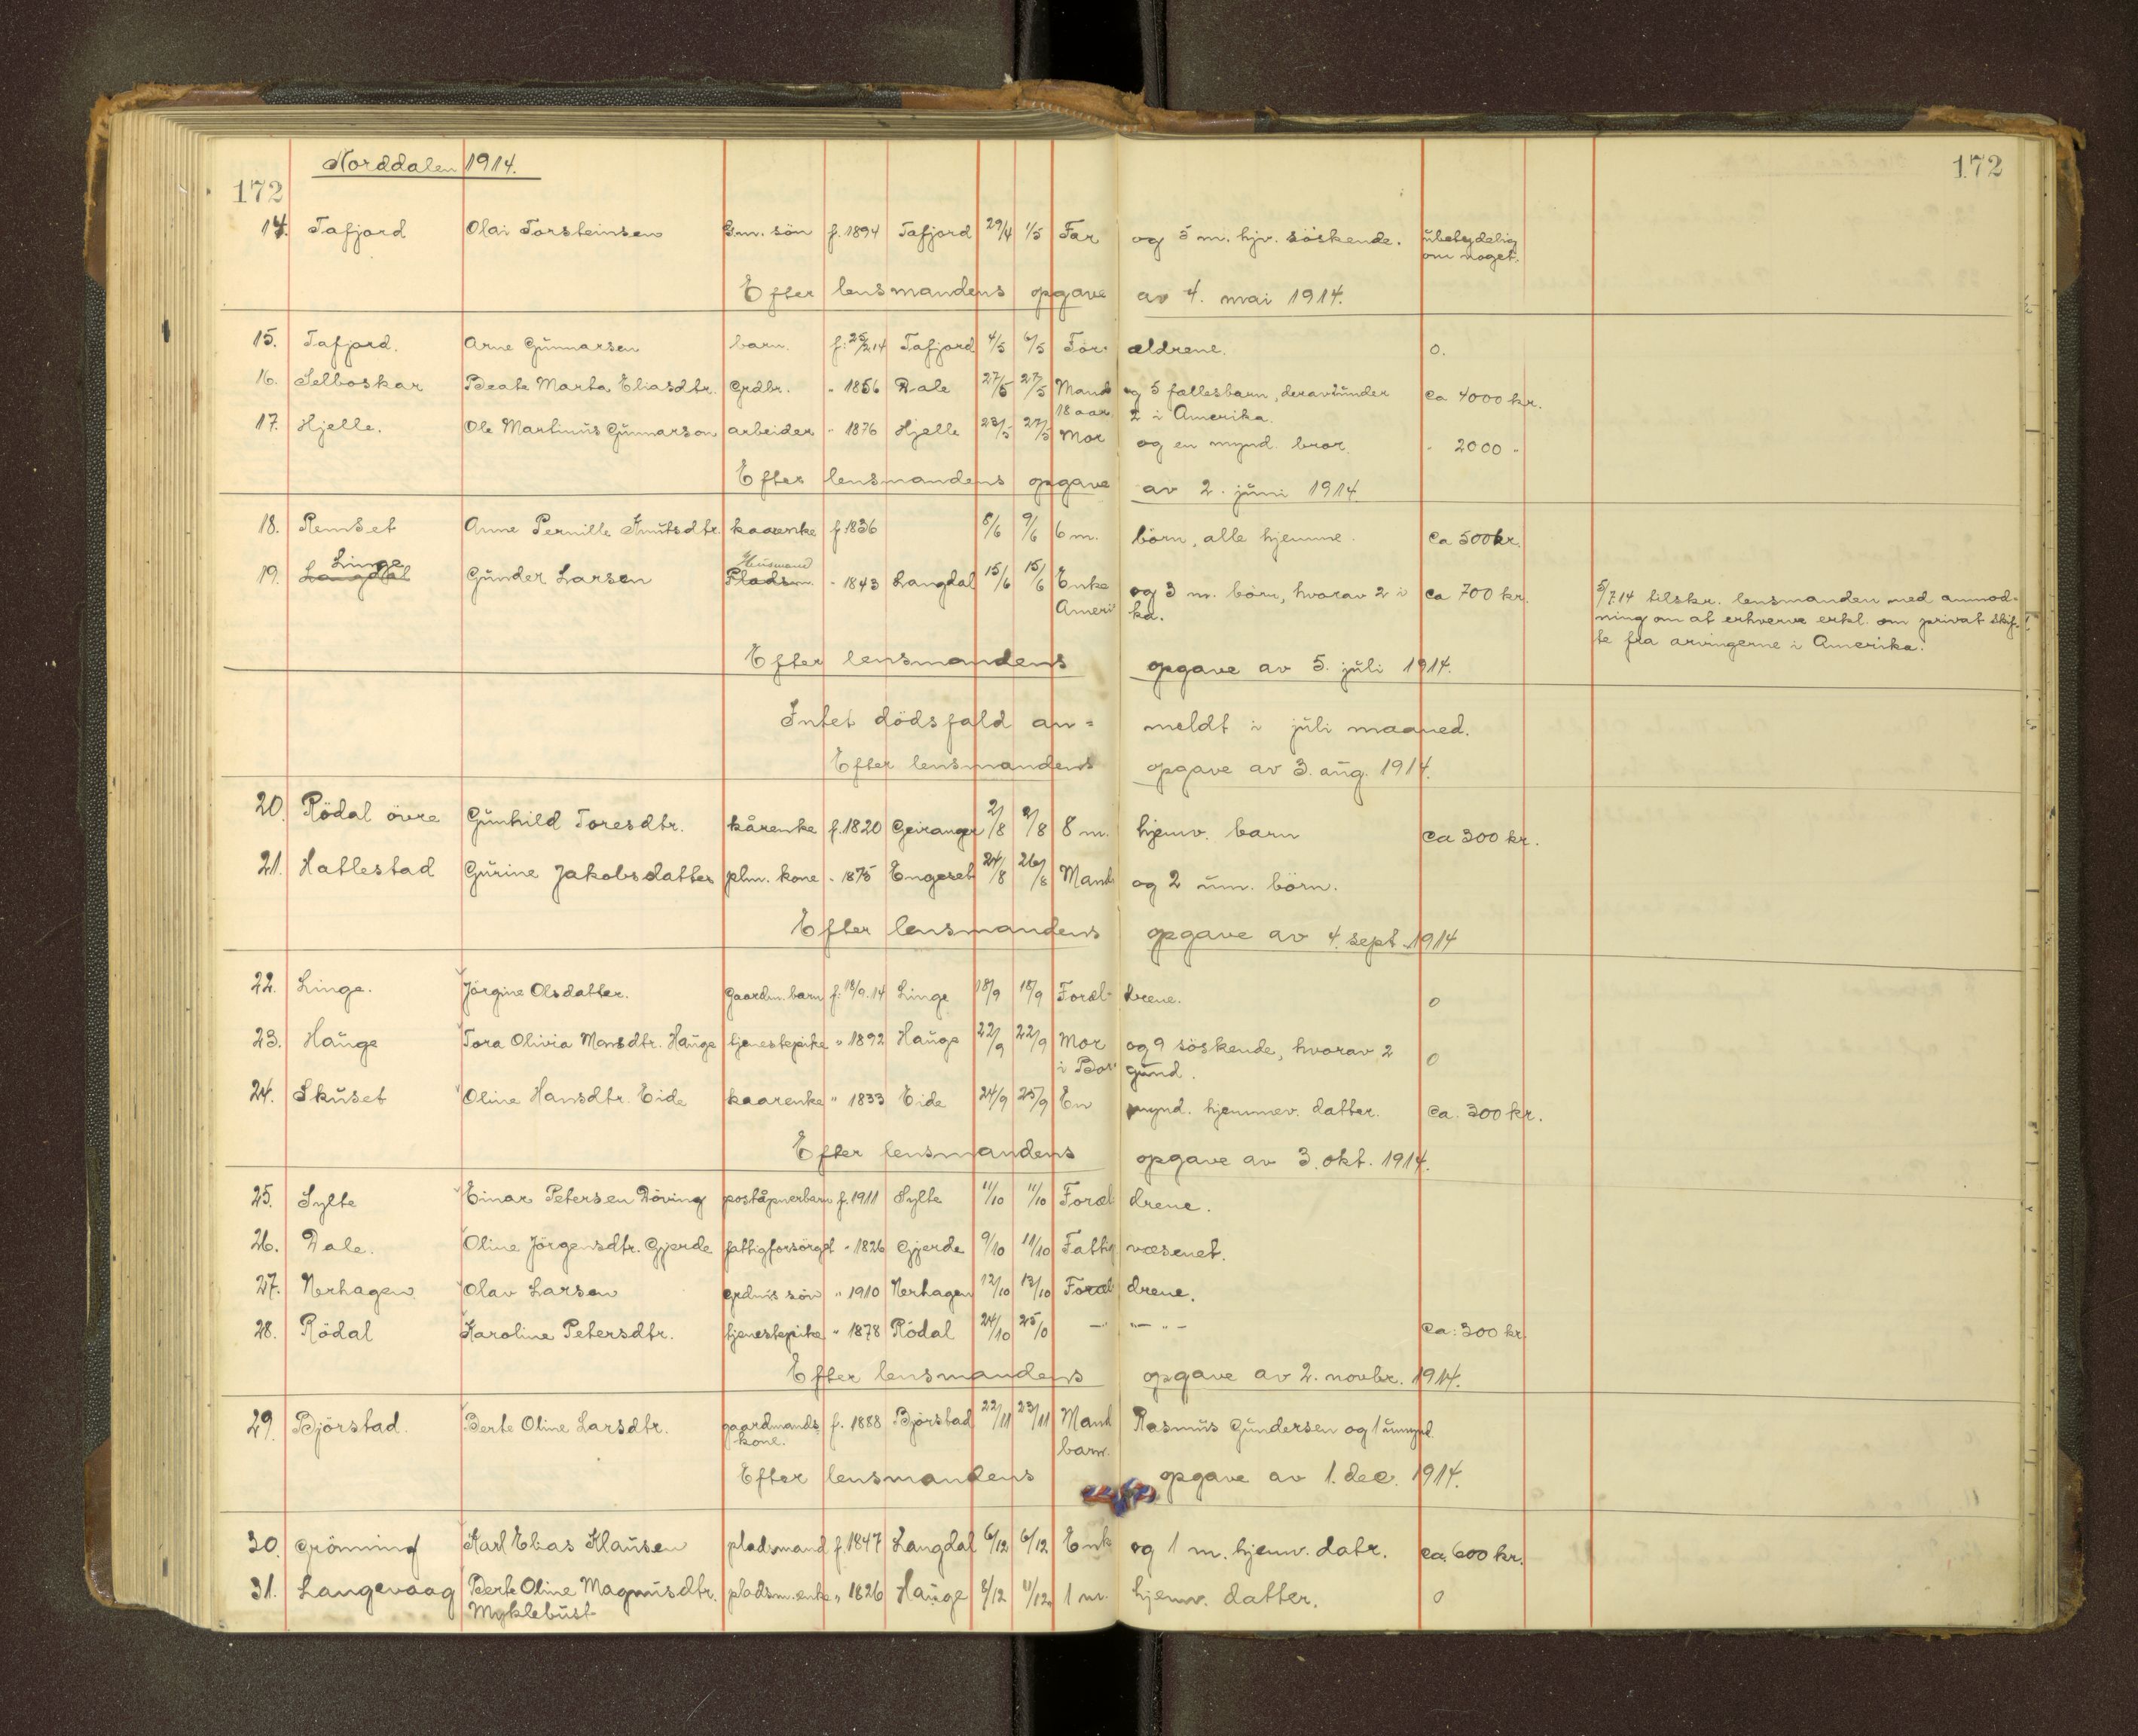 Norddalen 1914.
172
172
14. Tafjord Olai Torsteinsen G.m. sön f. 1894 Tafjord 29/4 1/5 Far og 5 m. hjv. söskende. übetydelig
om noget.
Efter lensmandens opgave av 4. mai 1914.
15. Tafjord. Arne Günnarsen barn. f. 25/2 14 Tafjord 4/5 6/5 For- ældrene. 0.
16. Selboskar Beate Marta Eliasdtr. Grdbr. " 1856 Dale 27/5 27/5 Mand og 5 fællesbarn, deravünder ca 4000 kr.
18 aar. 2 i Amerika.
17. Hjelle. Ole Martinüs Günnarson arbeider " 1876 Hjelle 23/5 27/5 Mor og en mynd. bror. " 2000 "
Efter lensmandens opgave av 2. jüni 1914.
18. Remset Anne Pernille Knütsdtr. kaarenke f. 1836 8/6 9/6 6 m. börn, alle hjemme. Ca 500 kr.
Linge Hüsmand
19. Langdal Günder Larsen Pladsm. " 1843 Langdal 15/6 15/6 Enke og 3 m. börn, hvorav 2 i Ca 700 kr. 5/7 14 tilskr. lensmanden med anmod-
Ameri- ka. ning om at erhverve erkl. om privat skif-
te fra arvingerne i Amerika.
Efter lensmandens opgave av 5. jüli 1914.
Intet dödsfald an= meldt i jüli maaned.
Efter lensmandens opgave av 3. aüg. 1914.
20. Rödal övre Günhild Toresdtr. kårenke f. 1820 Geiranger 2/8 2/8 8 m. hjemv. barn Ca 300 kr.
21. Hatlestad Gürine Jakobsdatter plm. kone " 1875 Engeset 24/8 26/8 Mand og 2 üm. börn.
Efter lensmandens opgave av 4. sept. 1914
22. Linge. Jörgine Olsdatter. Gaardm. barn f. 18/9.14 Linge 18/9 18/9 Foræl- drene. 0
23. Haüge Tora Olivia Monsdtr. Haüge tjenestepike " 1892 Haüge 22/9 22/9 Mor og 9 söskende, hvorav 2 0
i Bor- günd.
24. Sküset Oline Hansdtr. Eide kaarenke " 1833 Eide 24/9 25/9 En mynd. hjemmev. datter. Ca. 300 kr.
Efter lensmandens opgave av 3. okt. 1914.
25. Sylte Einar Petersen Döving poståpnerbarn f. 1911 Sylte 11/10 11/10 Foræl drene.
26. Dale. Oline Jörgensdtr. Gjerde fattigforsörget " 1826 Gjerde 9/10 11/10 Fattig væsenet.
27. Nerhagen Olav Larsen grdms sön " 1910 Nerhagen 12/10 13/10 Foræl drene.
28. Rödal Karoline Petersdtr. tjenestepike " 1878 Rödal 24/10 25/0 —" "— " — Ca: 300 kr.
Efter lensmandens opgave av 2. novbr. 1914.
29. Björstad. Berte Oline Larsdtr. gaardmands f. 1888 Björstad 22/11 23/11 Mand Rasmüs Gündersen og 1 ümynd.
kone. barn.
Efter lensmandens opgave av 1. dec. 1914.
30. Grönning Karl Elias Klaüsen pladsmand f. 1847 Langdal 6/12 6/12 Enk og 1 m. hjemv. datr. ca. 600 kr.
31. Langevaag Berte Oline Magnüsdtr. pladsm. enke " 1826 Haüge 8/12 11/12 1 m. hjemv. datter. 0
Myklebüst